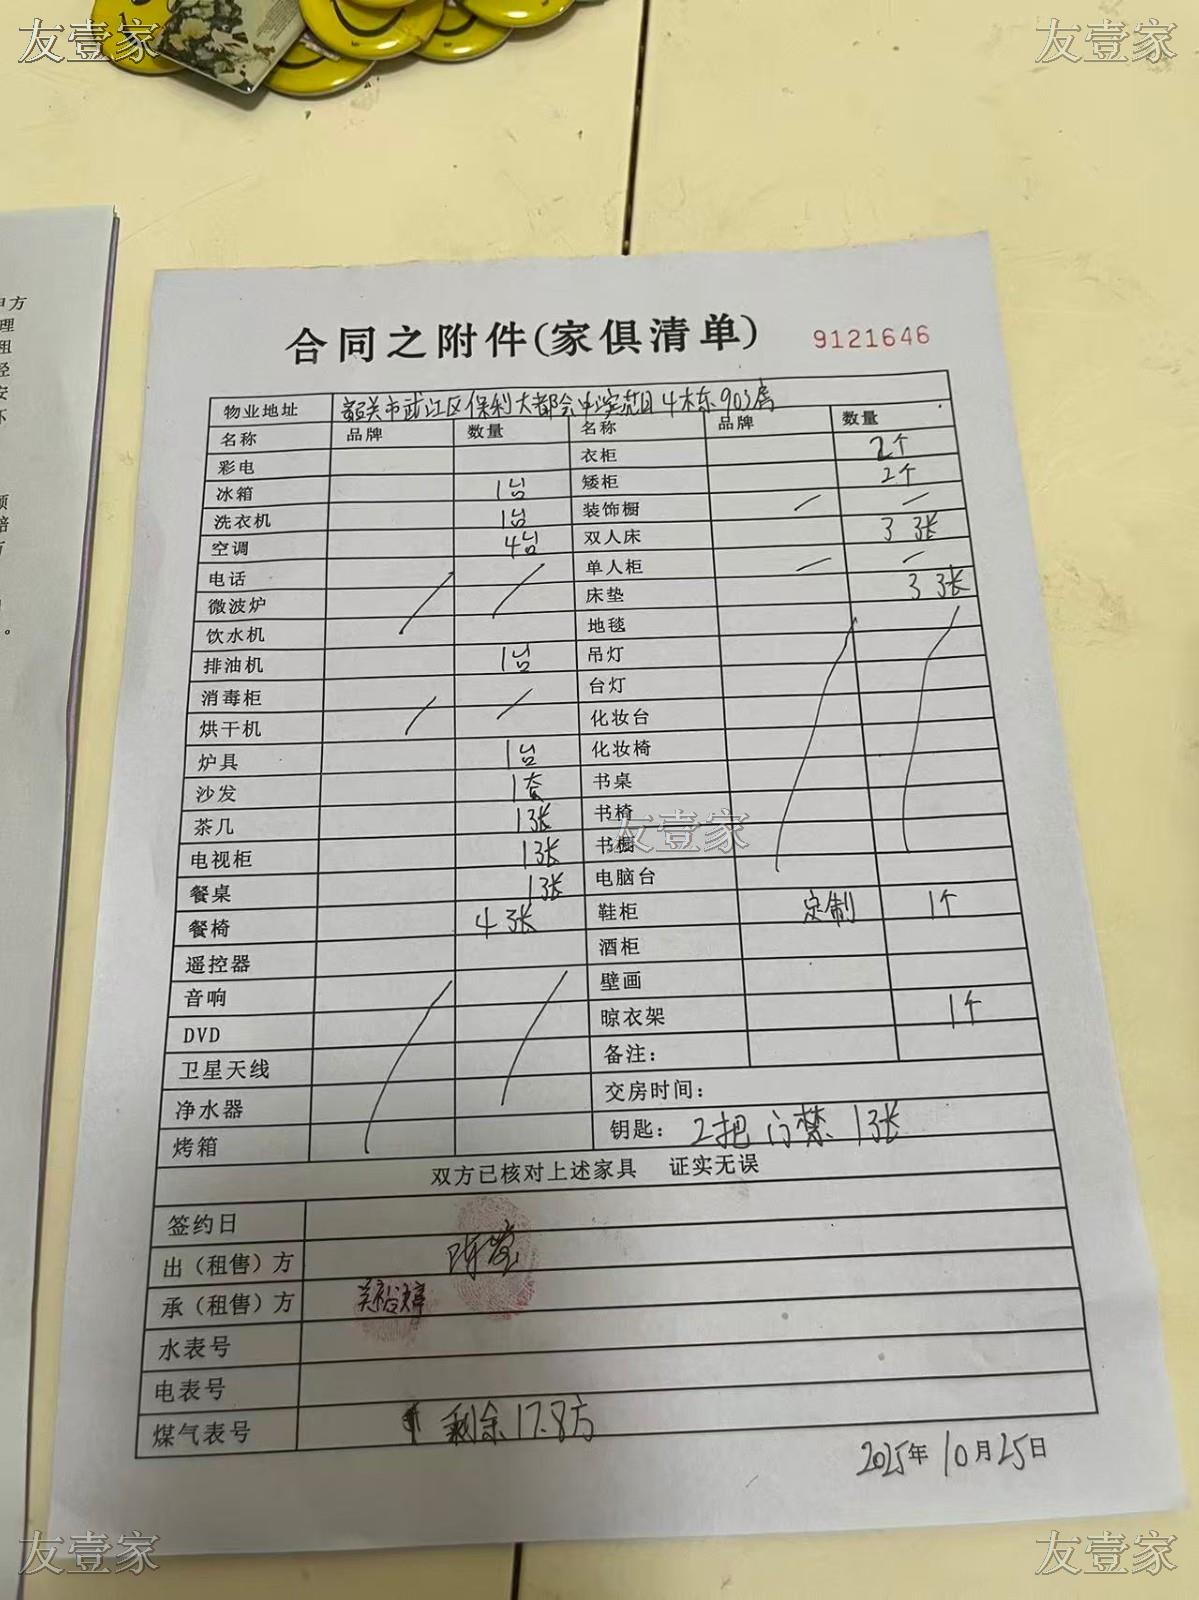 友壹家
友壹家
合同之附件(家俱清单)
9121646
物业地址 韶关市武江区保利大都会 4栋903房
名称 品牌 数量 名称 品牌 数量
彩电 衣柜 2个
冰箱 1台 矮柜 2个
洗衣机 1台 装饰橱
空调 4台 双人床 3 张
电话 单人柜
微波炉 床垫 3 张
饮水机 地毯
排油机 1台 吊灯
消毒柜 台灯
烘干机 化妆台
炉具 1台 化妆椅
沙发 1套 书桌
茶几 1张 书椅
友壹家
电视柜 1张 书橱
餐桌 1张 电脑台
餐椅 4 张 鞋柜 定制 1个
遥控器 酒柜
音响 壁画
DVD 晾衣架 1个
卫星天线 备注:
净水器 交房时间:
烤箱 钥匙: 2把 门禁 1张
双方已核对上述家具 证实无误
签约日
出（租售）方 陈莹
承（租售）方
水表号
电表号
煤气表号 剩余17.8方
2025年10月25日
甲方
理
租
经
安
坏
频
赔
。
友壹家
友壹家